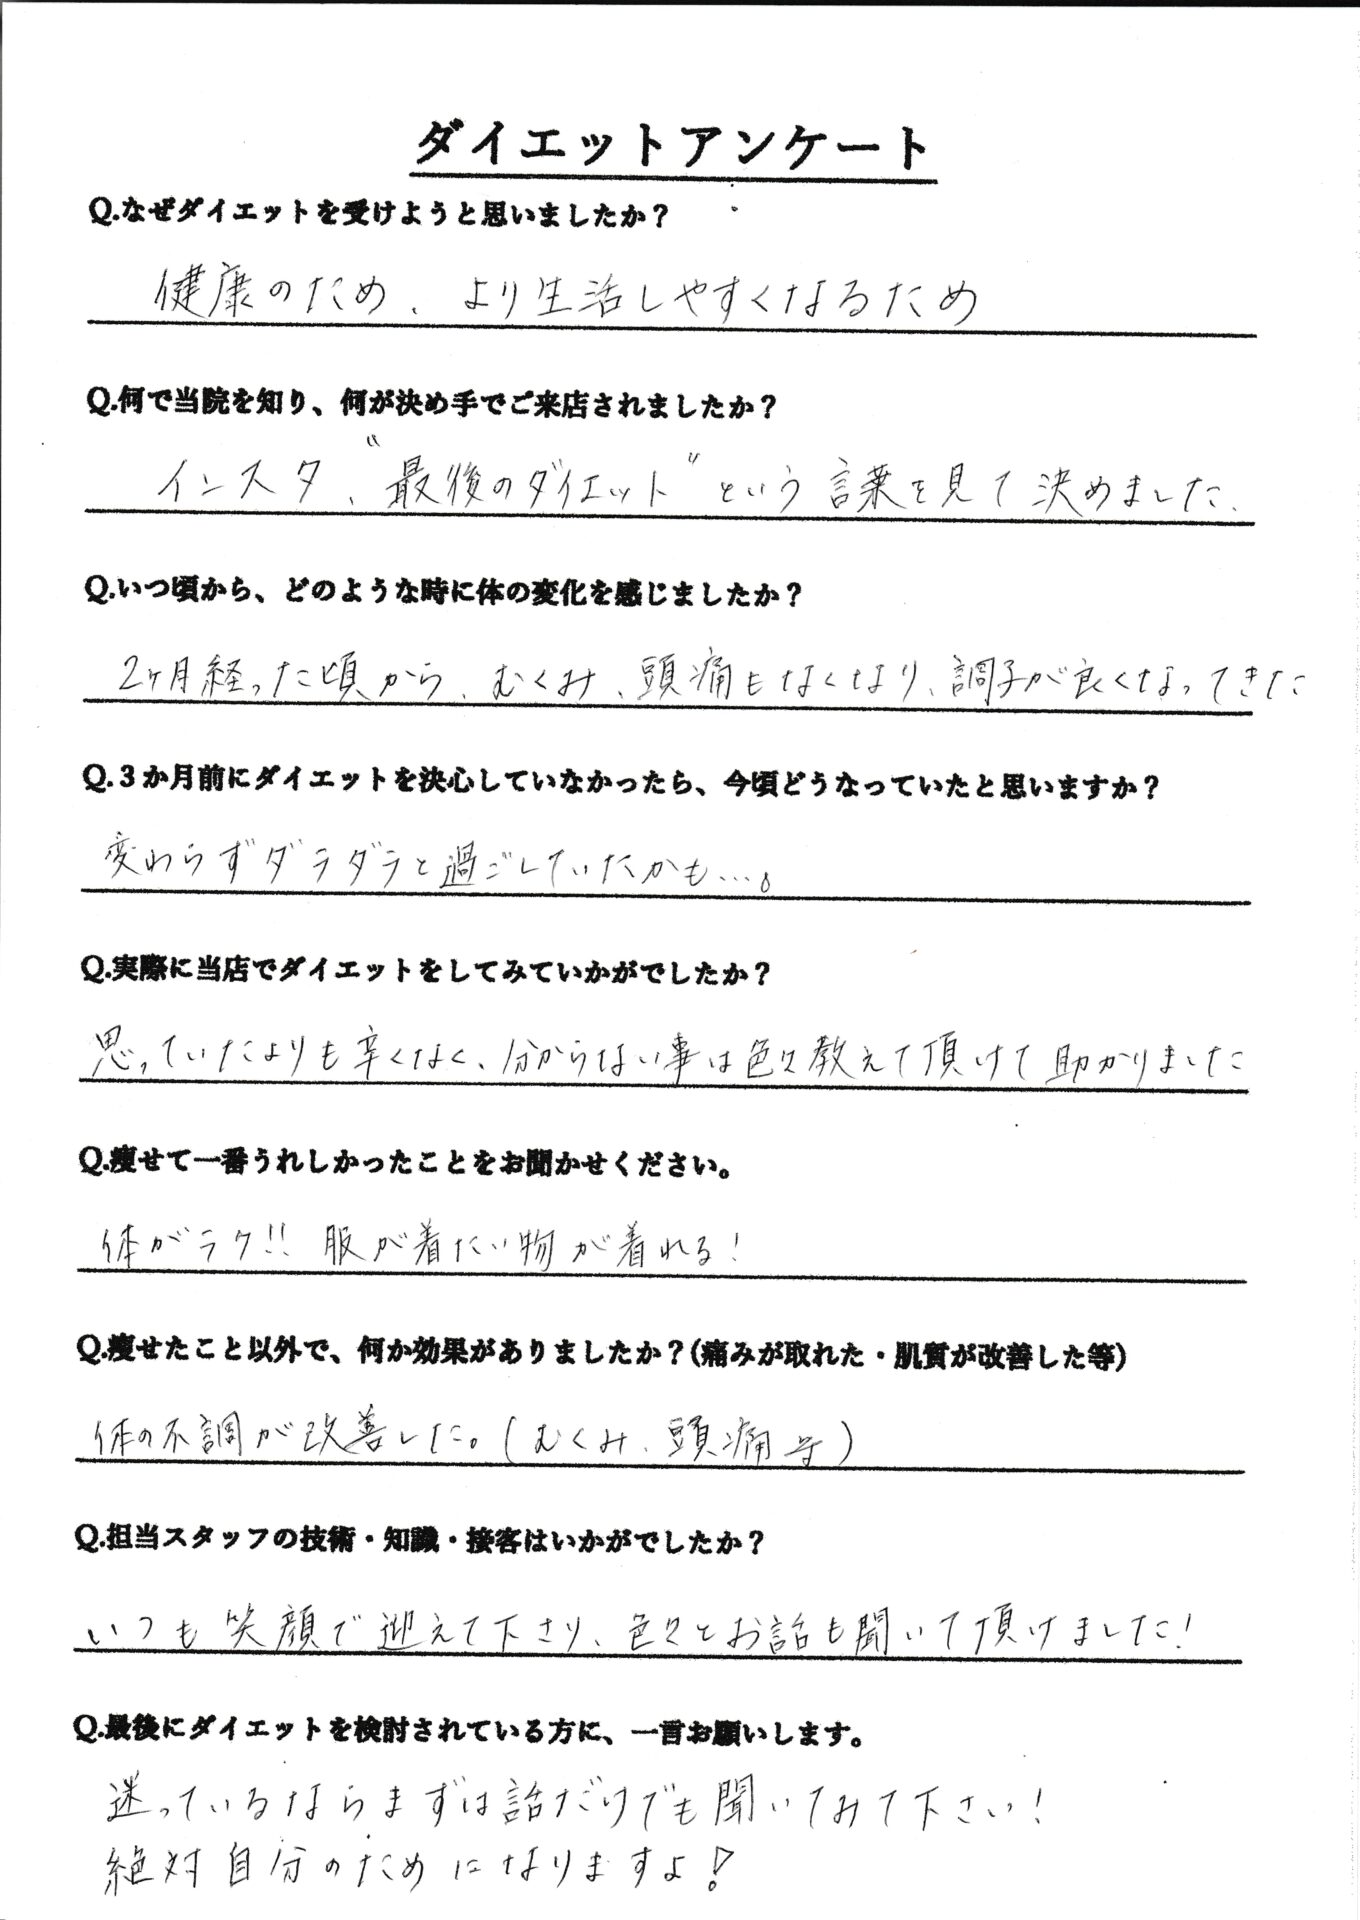 ダイエットアンケート
Q.なぜダイエットを受けようと思いましたか？
健康のため、より生活しやすくなるため
Q.何で当院を知り、何が決め手でご来店されましたか？
インスタ、"最後のダイエット"という言葉を見て決めました、
Q.いつ頃から、どのような時に体の変化を感じましたか？
2ヶ月経った頃から、むくみ、頭痛もなくなり、調子が良くなってきた
Q.３か月前にダイエットを決心していなかったら、今頃どうなっていたと思いますか？
変わらずダラダラと過ごしていたかも…。
Q.実際に当店でダイエットをしてみていかがでしたか？
思っていたよりも辛くなく、分からない事は色々教えて頂けて助かりました
Q.痩せて一番うれしかったことをお聞かせください。
体がラク!! 服が着たい物が着れる!
Q.痩せたこと以外で、何か効果がありましたか？(痛みが取れた・肌質が改善した等)
体の不調が改善した。(むくみ、頭痛等)
Q.担当スタッフの技術・知識・接客はいかがでしたか？
いつも笑顔で迎えて下さり、色々とお話も聞いて頂けました!
Q.最後にダイエットを検討されている方に、一言お願いします。
迷っているならまずは話だけでも聞いてみて下さい!
絶対自分のためになりますよ!